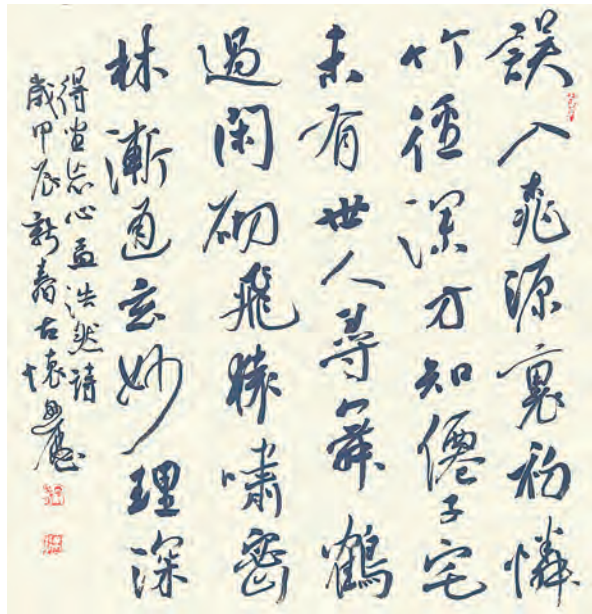 誤入桃源裏初憐
竹徑深方知僊子宅
未有世人尋舞鶴
過閑砌飛猿嘯密
林漸通玄妙理深
得坐忘心孟浩然詩
歲甲辰新春古懷